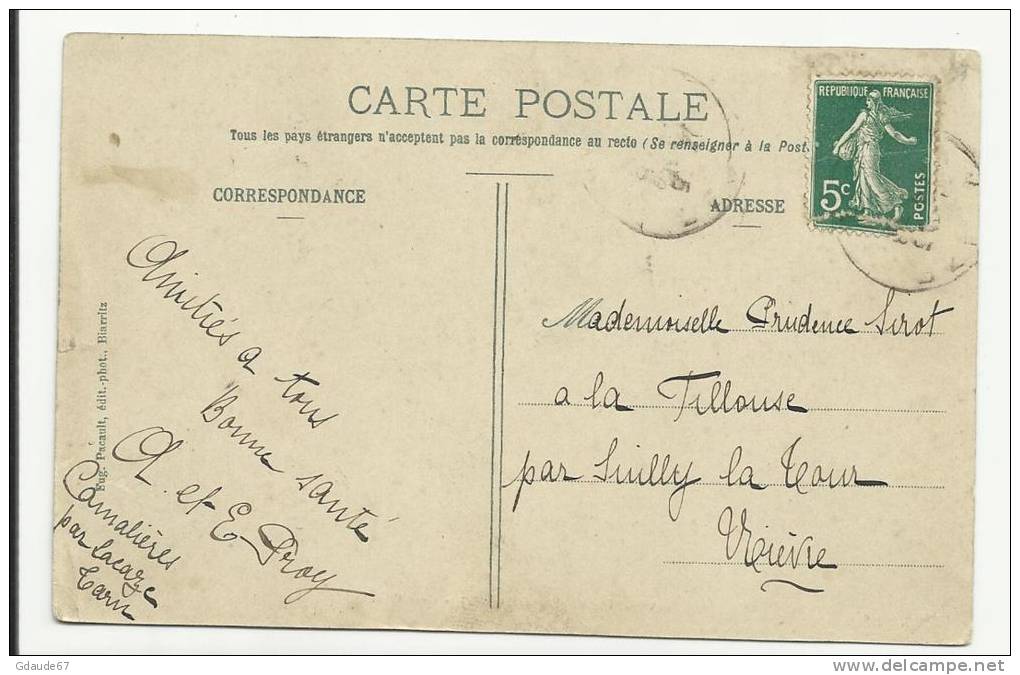 CARTE POSTALE
Tous les pays étrangers n'acceptent pas la correspondance au recto (Se renseigner à la Post
CORRESPONDANCE
ADRESSE
REPUBLIQUE FRANÇAISE
5c
POSTES
Amitiés a tous
Bonne santé
A. et E. Proy
Camalières
par Lacaze
Tarn
Eug. Pacault, édit.-phot., Biarritz
Mademoiselle Prudence Sirot
a la Tillouse
par Suilly la Tour
Nièvre
Gdaude67
delcampe.net